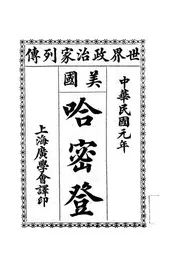 世界政治家列傳
中華民國元年
美國
哈密登
上海廣學會譯印